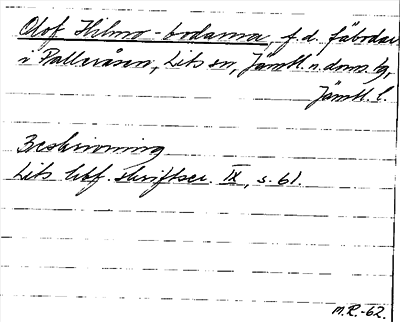 Olof Hilmo-bodarna, f.d. fäbodar
i Pallråsen, Lits sn, Jämtl. n. doms. tg,
Jämtl. l.
Beskrivning
Lits hbf. skriftser. IX, s. 61.
M.R.-62.